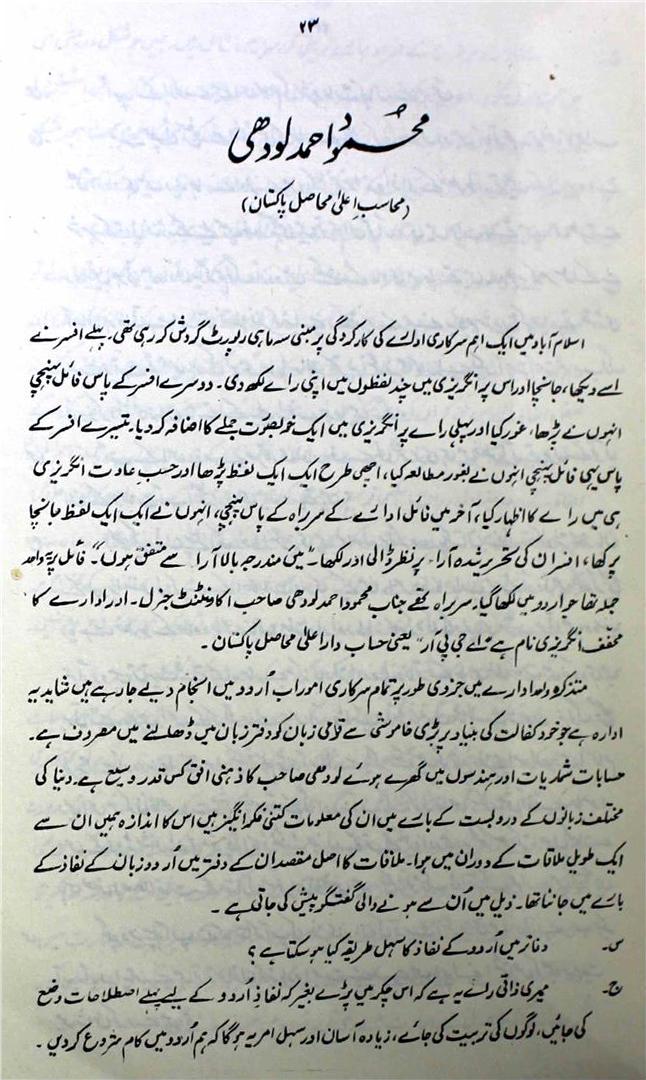 ۲۳
محمود احمد لودھی
(محاسبِ اعلیٰ محاصل پاکستان)
اسلام آباد میں ایک اہم سرکاری ادارے کی کارکردگی پر مبنی سہ ماہی رپورٹ گردش کر رہی تھی۔ پہلے افسر نے
اسے دیکھا، جانچا اور اس پر انگریزی میں چند لفظوں میں اپنی رائے لکھ دی۔ دوسرے افسر کے پاس فائل پہنچی
انہوں نے پڑھا، غور کیا اور پہلی رائے پر انگریزی میں ایک خوبصورت جملے کا اضافہ کر دیا۔ تیسرے افسر کے
پاس یہی فائل پہنچی انہوں نے بغور مطالعہ کیا، اچھی طرح ایک ایک لفظ پڑھا اور حسب عادت انگریزی
ہی میں رائے کا اظہار کیا، آخر میں فائل ادارے کے سربراہ کے پاس پہنچی، انہوں نے ایک ایک لفظ جانچا
پرکھا، افسران کی تحریر شدہ آراء پر نظر ڈالی اور لکھا۔ "میں مندرجہ بالا آرا سے متفق ہوں"۔ فائل پر یہ واحد
جملہ تھا جو اردو میں لکھا گیا۔ سربراہ تھے جناب محمود احمد لودھی صاحب اکاؤنٹنٹ جنرل۔ اور ادارے کا
مخفف انگریزی نام ہے "اے جی پی آر" یعنی حساب دار اعلیٰ محاصل پاکستان۔
متذکرہ واحد ادارے میں جزوی طور پر تمام سرکاری امور اب اُردو میں انجام دیے جا رہے ہیں شاید یہ
ادارہ ہے جو خود کفالت کی بنیاد پر بڑی خاموشی سے قومی زبان کو دفتر زبان میں ڈھالنے میں مصروف ہے۔
حسابات شماریات اور ہندسوں میں گھرے ہوئے لودھی صاحب کا ذہنی افق کس قدر وسیع ہے۔ دنیا کی
مختلف زبانوں کے دروبست کے بارے میں ان کی معلومات کتنی فکر انگیز ہیں اس کا اندازہ ہمیں ان سے
ایک طویل ملاقات کے دوران میں ہوا۔ ملاقات کا اصل مقصد ان کے دفتر میں اُردو زبان کے نفاذ کے
بارے میں جاننا تھا۔ ذیل میں اُن سے ہونے والی گفتگو پیش کی جاتی ہے۔
س۔ دفاتر میں اُردو کے نفاذ کا سہل طریقہ کیا ہو سکتا ہے؟
ج۔ میری ذاتی رائے یہ ہے کہ اس چکر میں پڑے بغیر کہ نفاذِ اُردو کے لیے پہلے اصطلاحات وضع
کی جائیں، لوگوں کی تربیت کی جائے، زیادہ آسان اور سہل امر یہ ہو گا کہ ہم اُردو میں کام شروع کر دیں۔